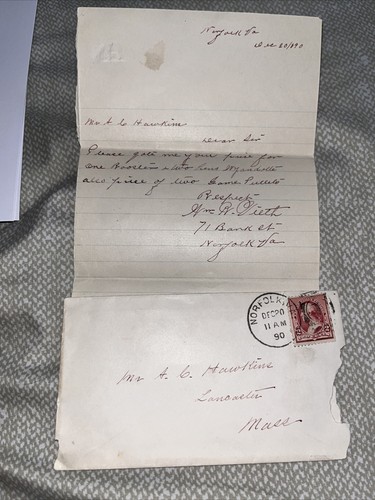 Norfolk Va
Dec 20/890
Mr A C Hawkins
Dear Sir
Please gote me your price for
one Rooster & two hens Wyandotts
also price of two Game Pullets
Respect
Wm H. Vieth
71 Bank st
Norfolk Va
NORFOLK,
DEC 20
11 AM
90
Mr A. C. Hawkins
Lancaster
Mass